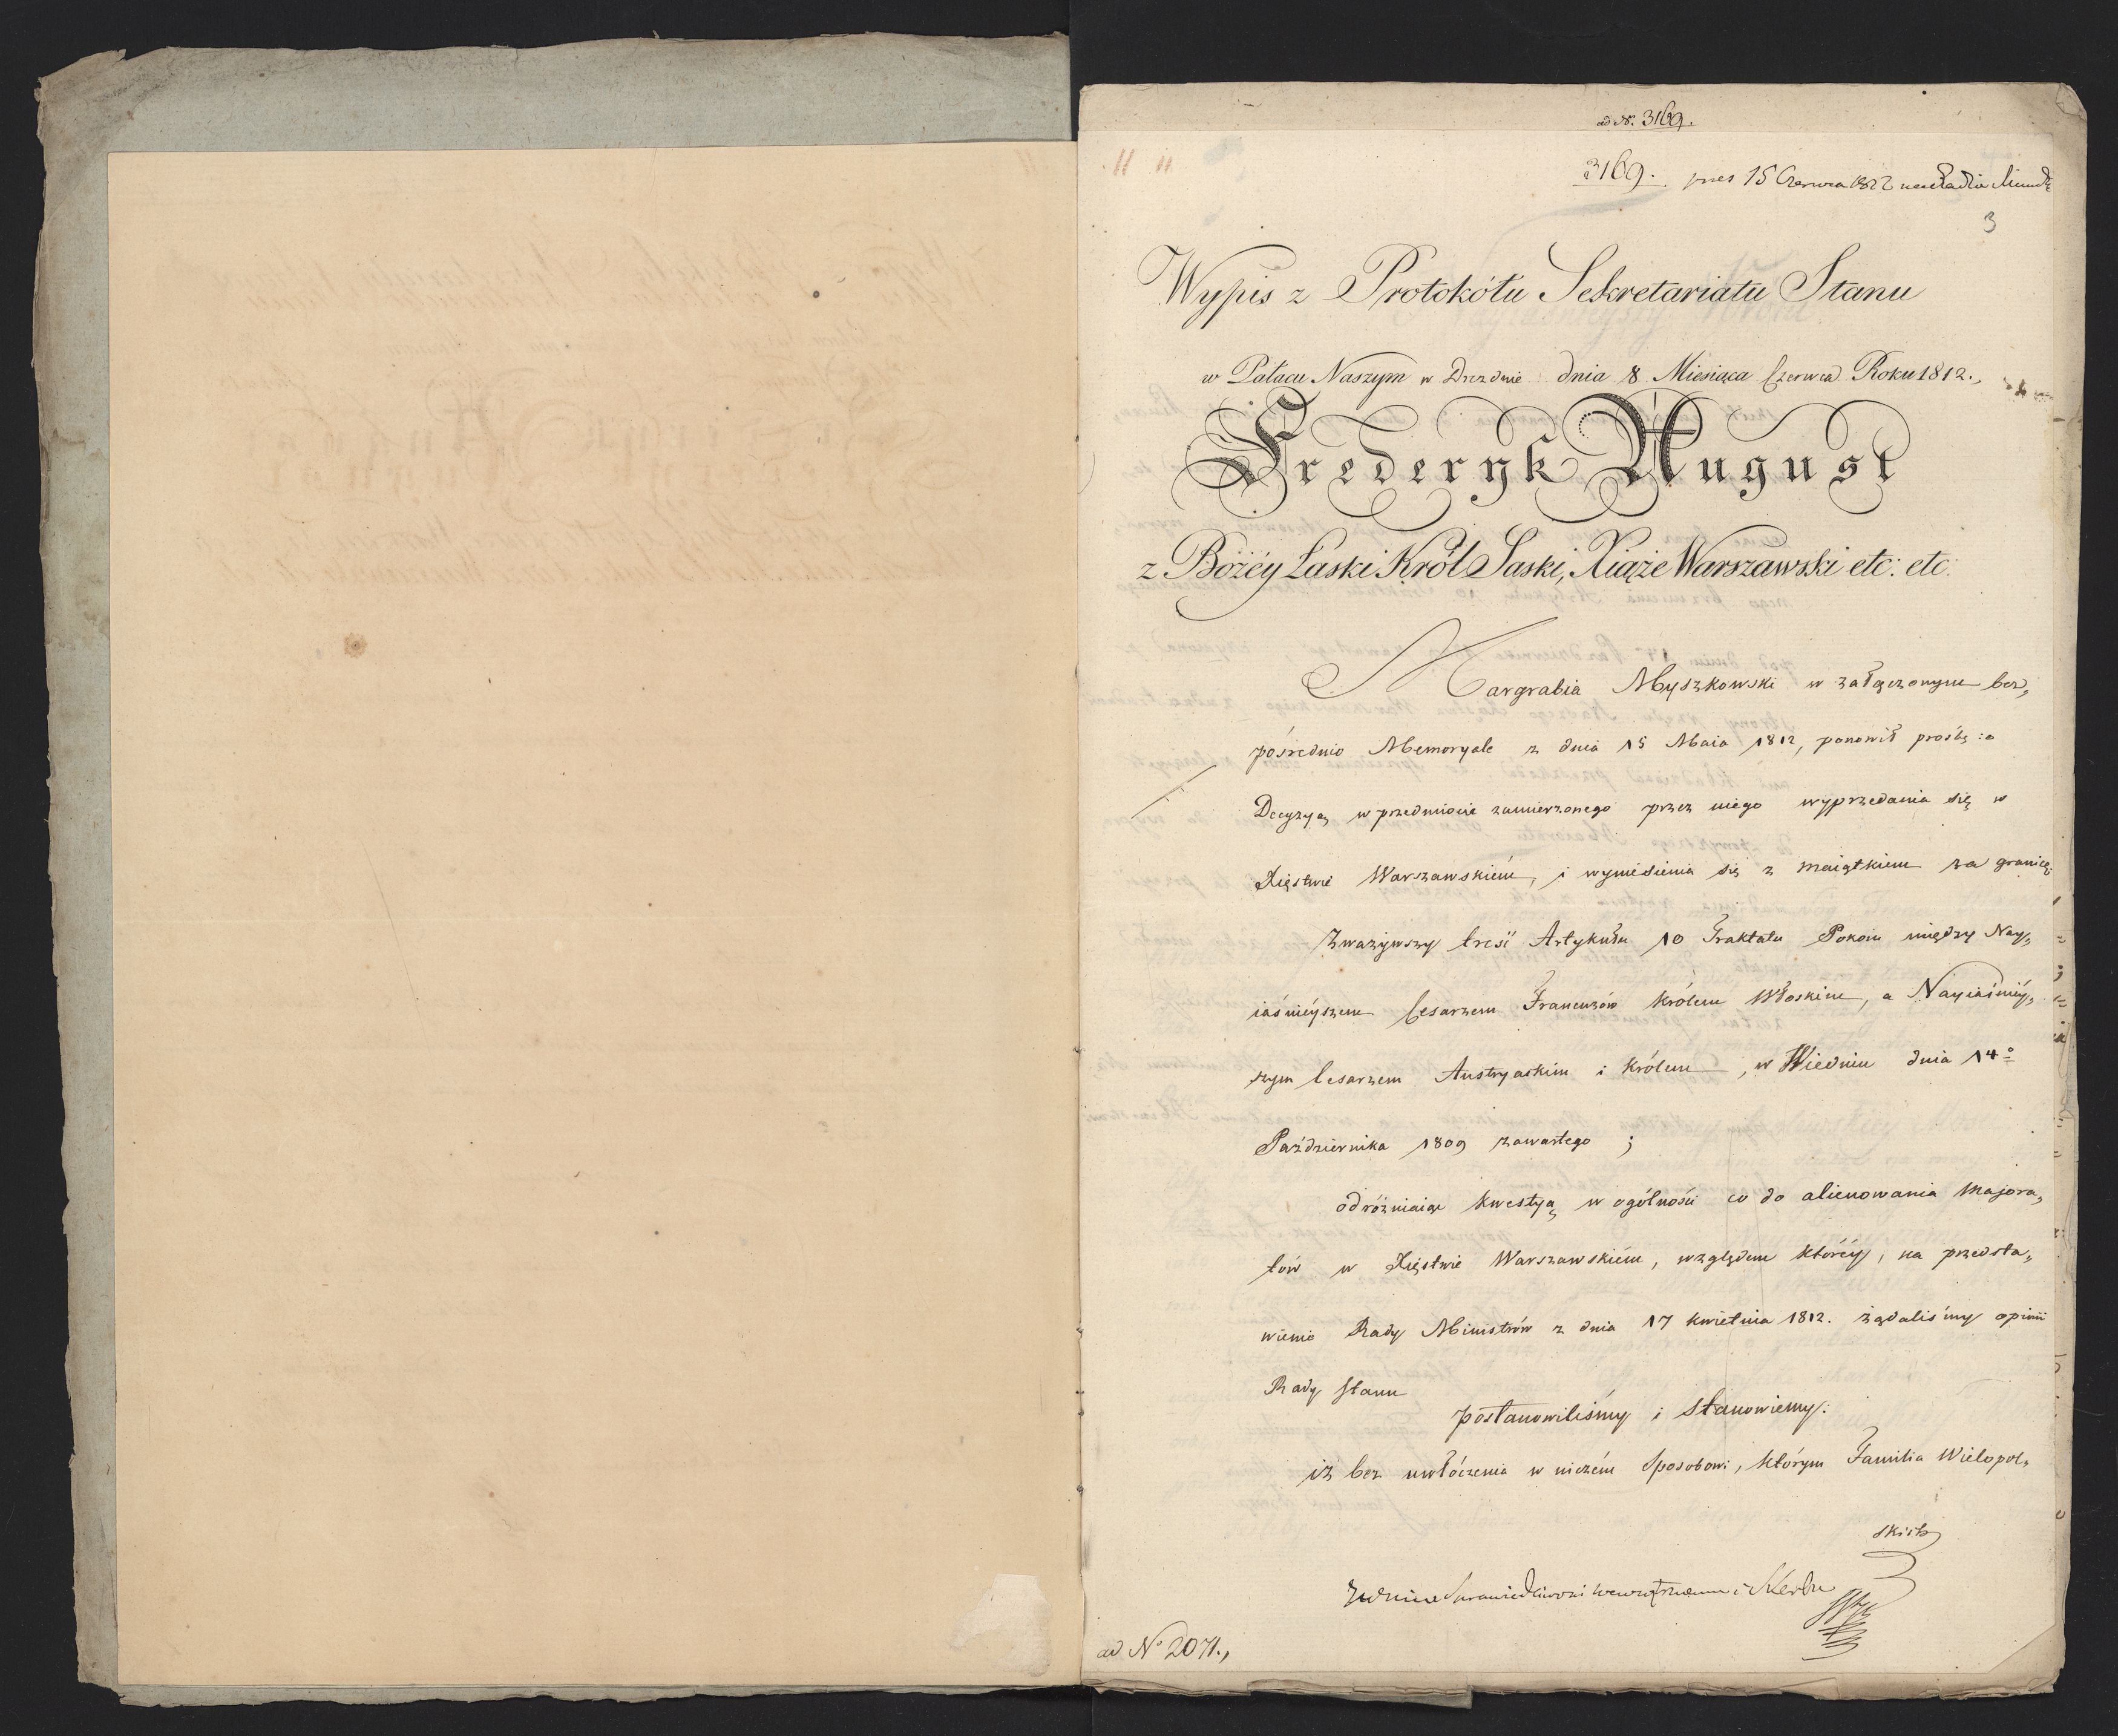 ad Nr. 3169.
3169. pres 15 Czerwca 1812
3
Wypis z Protokółu Sekretariatu Stanu
w Pałacu Naszym w Dreznie dnia 8 Miesiąca Czerwca Roku 1812.,
Frederyk August
z Bożéy Łaski Król Saski, Xiąże Warszawski etc: etc:
Margrabia Myszkowski w załączonym bez„
pośrednio Memoryale z dnia 15 Maia 1812, ponowił prośbę :o
Decyzyą w przedmiocie zamierzonego przez niego wyprzedania się w
Xięstwie Warszawskiém, i wyniesienia się z maiątkiem za granicę;
Zważywszy treść Artykułu 10 Traktatu Pokoiu między Nay„
iaśnieyszem Cesarzem Francuzów Królem Włoskim, a Nayiaśniéy„
szym Cesarzem Austryackim i Królem, w Wiedniu dnia 14º
Października 1809 zawartego ;
odróżniaiąc kwestyą w ogólności co do alienowania Majora„
tów w Xięstwie Warszawskiém, względem któréy, na przedsta„
wienie Rady Ministrów z dnia 17 kwietnia 1812. żądaliśmy opinii
Rady Stanu
postanowiliśmy i stanowiemy:
iż bez uwłóczenia w niczém sposobowi, którym Familia Wielopol„
skich
Sprawiedliwości wewnętrznemu i Skarbu
ad Nº 2071.,